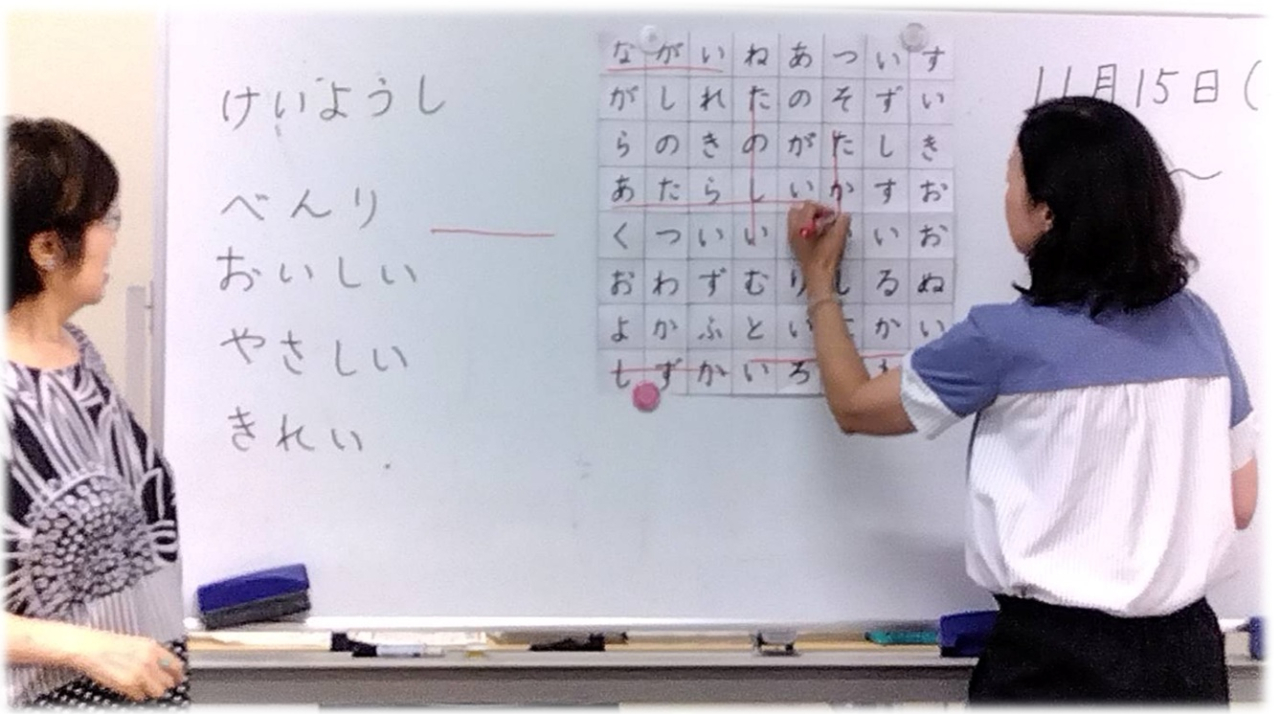 けいようし
べんり
おいしい
やさしい
きれい
ながいねあついす
がしれたのそずい
らのきのがたしき
あたらしいかすお
くついい いお
おわずむりしるぬ
よかふとい かい
しずかいろ
11月15日(